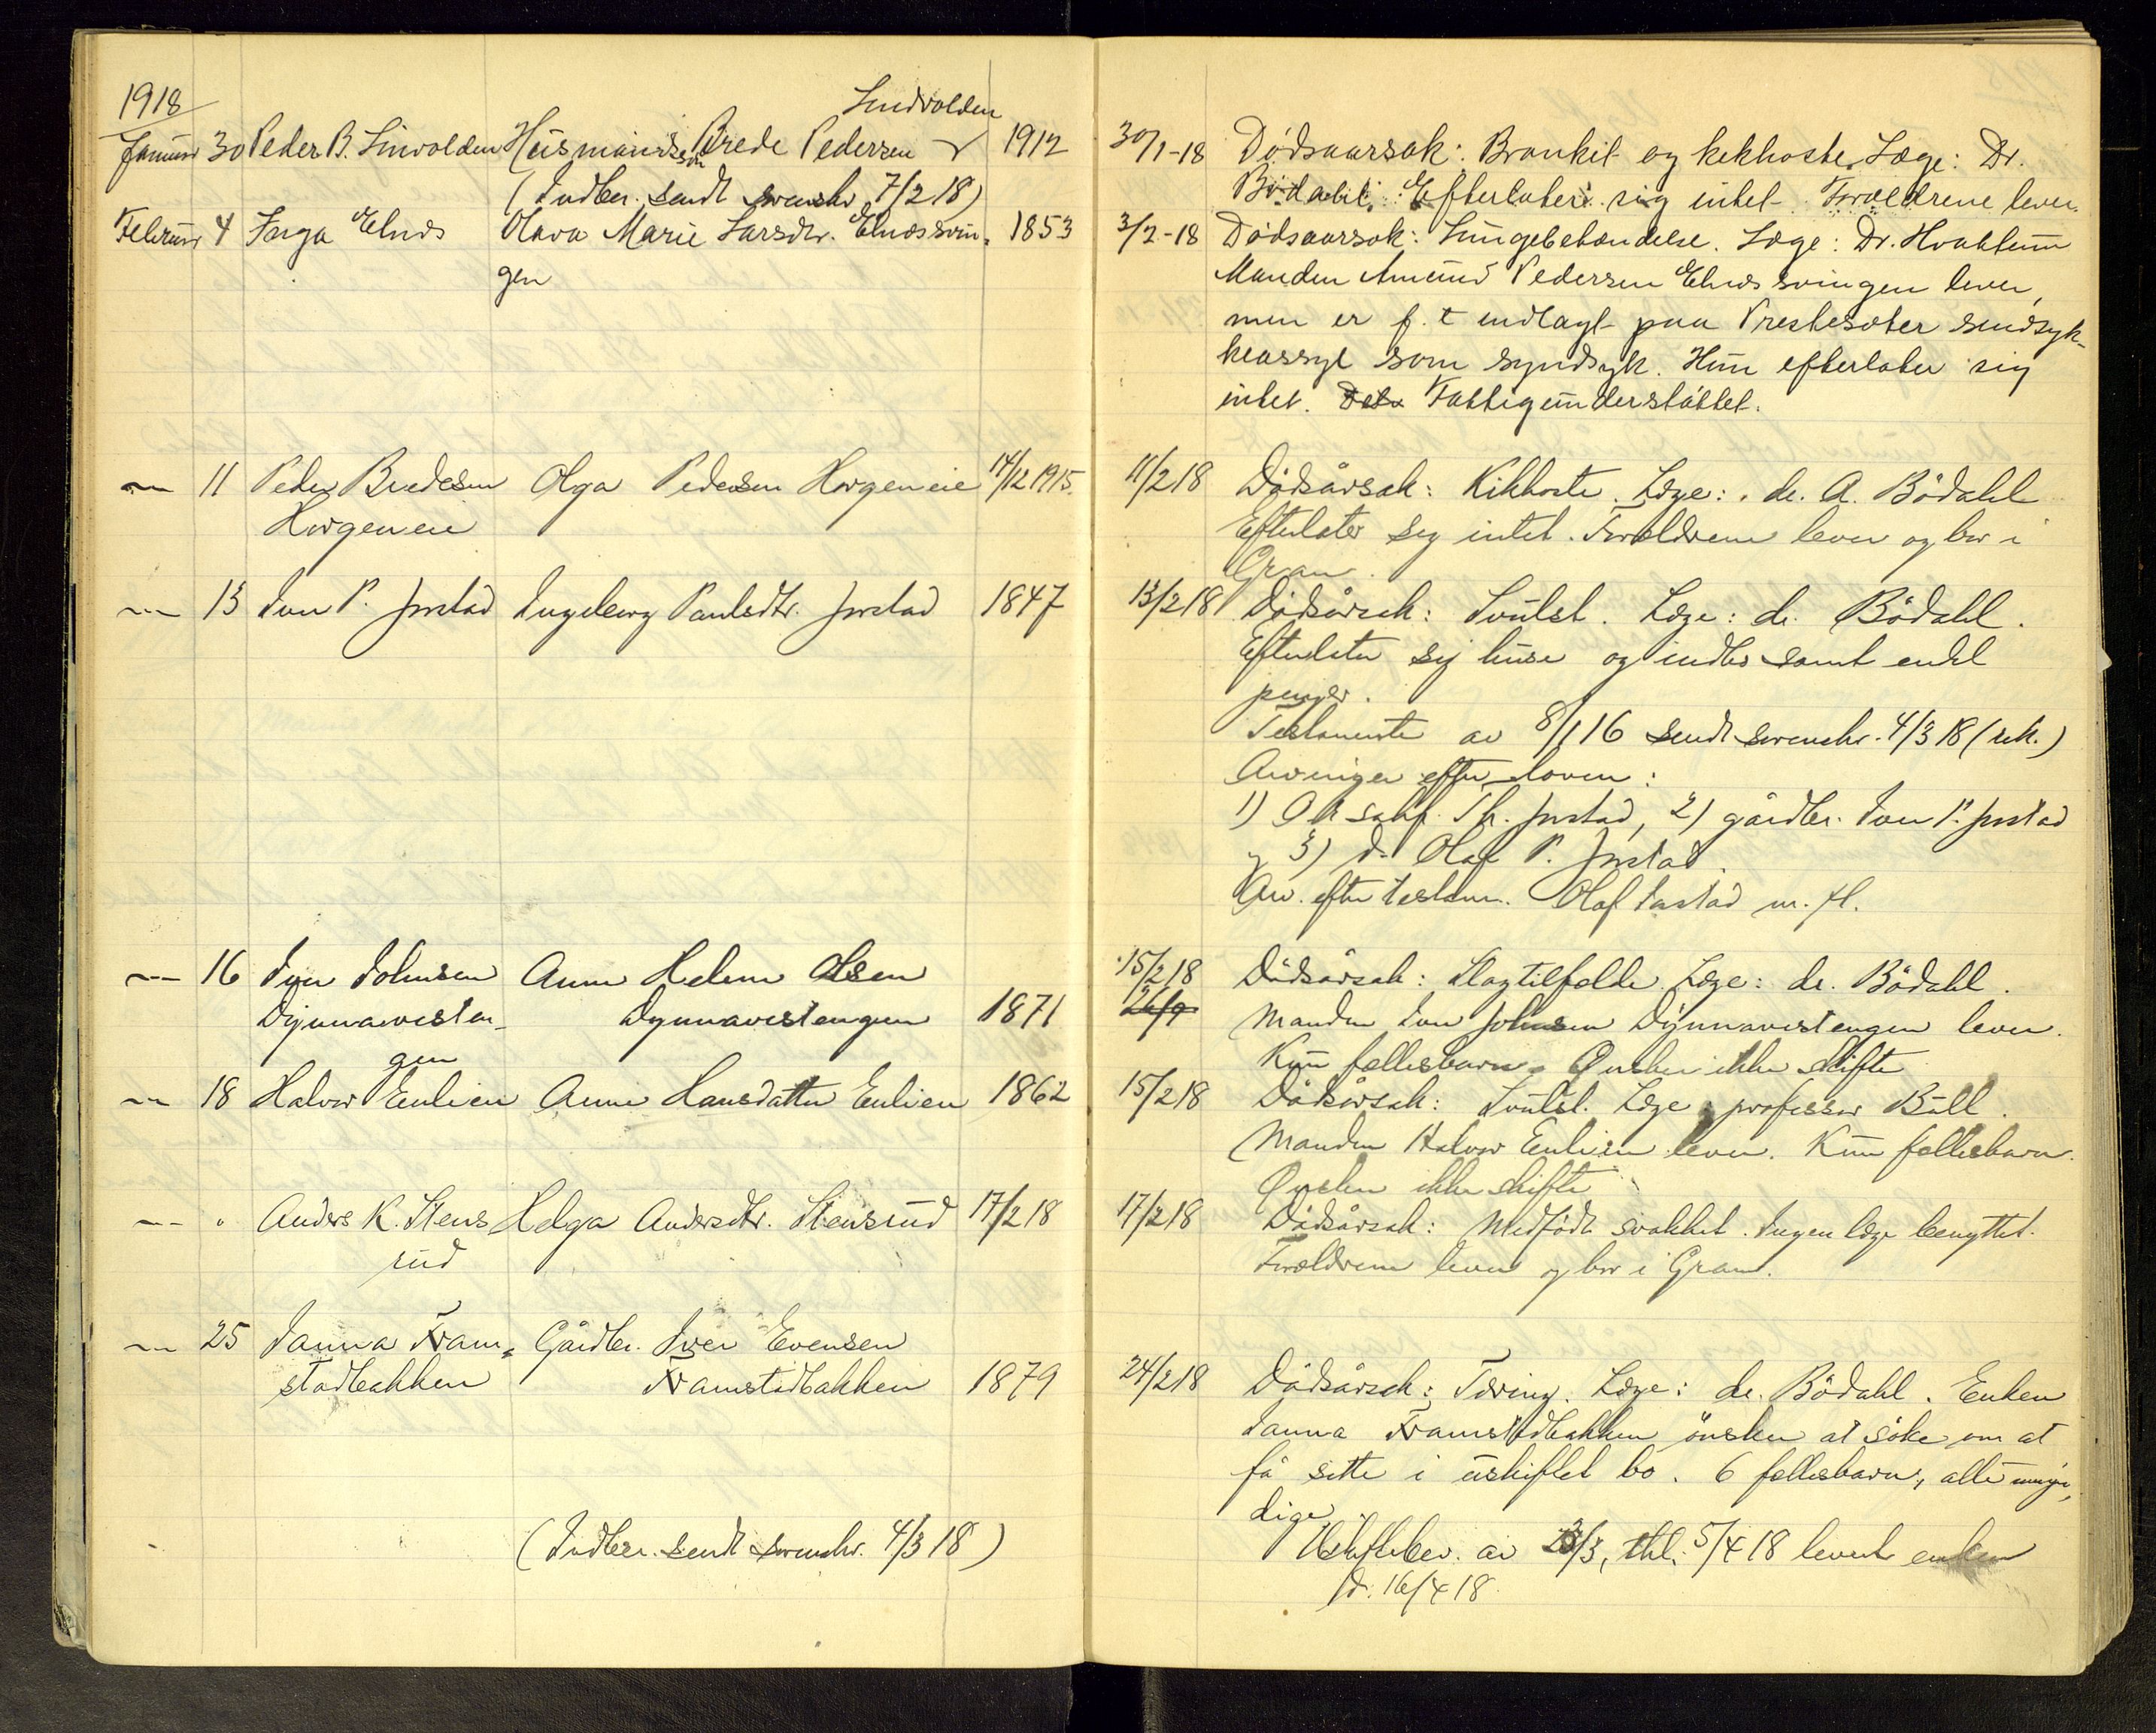 1918
Smedvolden
Januar 30 Peder B. Linvolden Husmandssøn Brede Pedersen 1912
(Indber. sendt sorenskr 7/2 18)
Februar 4 Inga Elnæs Olava Marie Larsdtr. Elnæssvin-
gen 1853
11 Peder Bredesen Olga Pedersen Horgeneie 14/12 1915.
Horgeneie
13 Iver P. Jorstad Ingeborg Paulsdtr. Jorstad 1847
16 Iver Johnsen Anne Helene Olsen
Dynnavesten- Dynnavestengen 1871
gen
18 Halvor Eulien Anne Hansdatter Eulien 1862
" Anders K. Stens Helga Andersdtr. Stensrud 17/2 18
rud
25 Janna Fram- Gårdbr. Iver Evensen
stadbakken Framstadbakken 1879
(Indber. sendt sorenskr. 4/3 18)
30/1-18 Dødsaarsak: Bronkit og kikhoste. Læge: Dr.
Bødahl. Efterlater sig intet. Forældrene lever.
3/2-18 Dødsaarsak: Lungebetændelse. Læge: Dr. Hvattum
Manden Amund Pedersen Elnæssvingen lever,
men er f. t indlagt paa Prestesæter sindsyk-
keasyl som syndsyk. Hun efterlater sig
intet. Fattigunderstøttet.
11/2 18 Dødsårsak: Kikhoste. Læge: dr. A. Bødahl
Efterlater sig intet. Forældrene lever og bor i
Gran.
13/2 18 Dødsårsak: Svulst. Læge: dr. Bødahl.
Efterlater sig huse og indbo samt endel
penger.
Testamente av 8/1 16 sendt sorenskr. 4/3 18 (rek.)
Arvinger efter loven:
1) O.r.sakf. Th. Jorstad, 2) gårdbr. Iver P. Jorstad
og 3) do Olaf P. Jorstad.
Arv. efter testam. Olaf Jorstad m. fl.
15/2 18 Dødsårsak: Slagtilfælde. Læge: dr. Bødahl.
26/9 Manden Iver Johnsen Dynnavestengen lever.
Kun fællesbarn. Ønsker ikke skifte
15/2 18 Dødsårsak: Svulst. Læge: professor Bull.
Manden Halvor Eulien lever. Kun fællesbarn.
Ønsker ikke skifte
17/2 18 Dødsårsak: Medfødt svakhet. Ingen læge benyttet.
Forældrene lever og bor i Gran.
24/2 18 Dødsårsak: Tæring. Læge: dr. Bødahl. Enken
Janna Framstadbakken ønsker at søke om at
få sitte i uskiftet bo. 6 fællesbarn, alle umyn-
dige.
Uskiftebev. av 23/3, thl. 5/4 18 levert enken
d. 16/4 18.